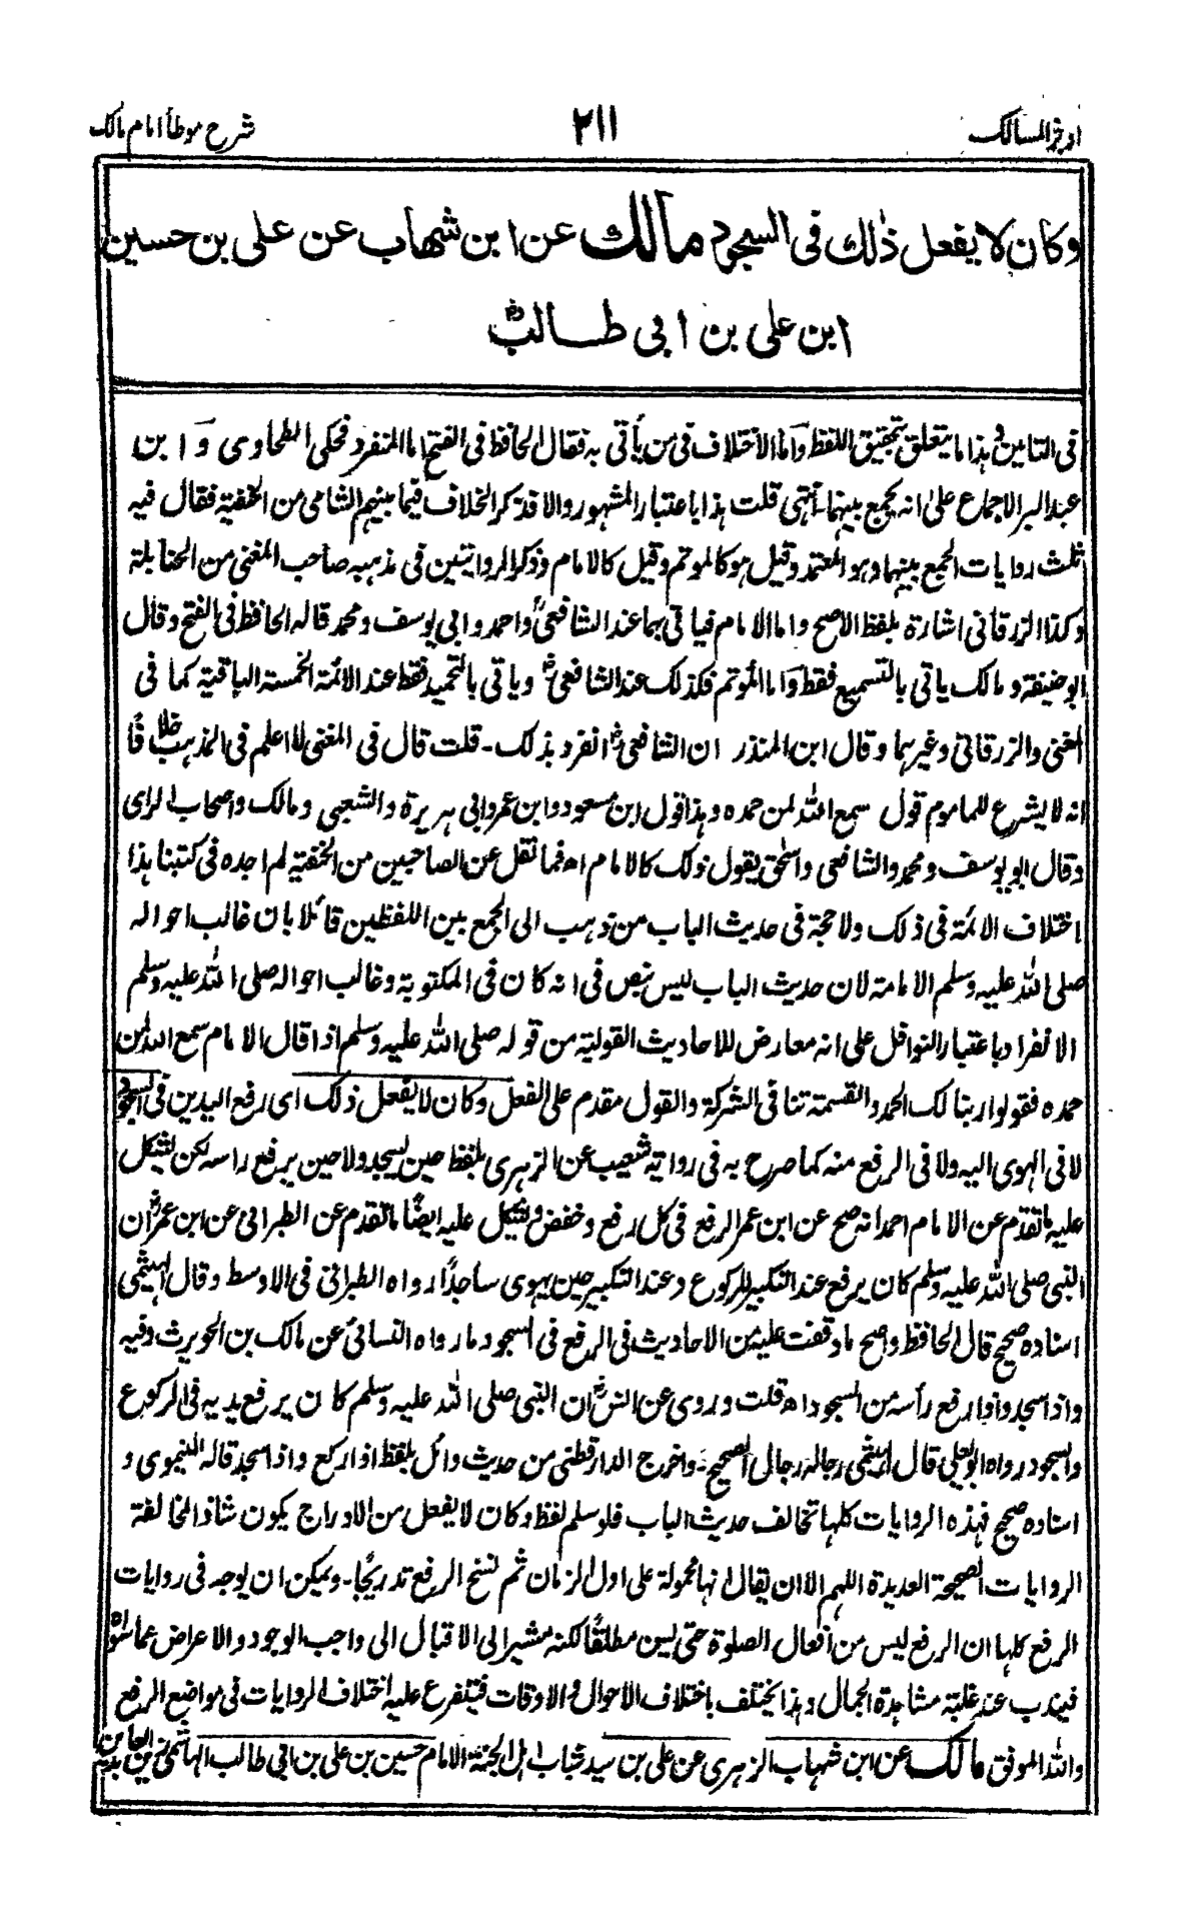 اوجز المسالك
٢١١
شرح موطأ امام مالك
وكان لا يفعل ذلك فى السجود مالك عن ابن شهاب عن على بن حسين
ابن على بن ابى طالب
فى التامين و هذا ما يتعلق بتحقيق اللفظ واما الاختلاف فى من يأتى به فقال الحافظ فى الفتح اما المنفرد فحكى الطحاوى و ابن
عبد البر الاجماع على انه يجمع بينهما۔ انتهى قلت هذا باعتبار المشهور والا قد ذكر الخلاف فيما بينهم الشامى من الحنفية فقال فيه
ثلث روايات الجمع بينهما وهو المعتمد وقيل هو كالمؤتم وقيل كالامام وذكر الروايتين فى مذهبه صاحب المغنى من الحنابلة
وكذا الزرقانى اشارة بلفظ الاصح واما الامام فياتى بهما عند الشافعى واحمد وابى يوسف ومحمد قاله الحافظ فى الفتح وقال
ابو حنيفة و مالك ياتى بالتسميع فقط واما المؤتم فكذلك عند الشافعى وياتى بالتحميد فقط عند الائمة الخمسة الباقية كما فى
المغنى والزرقانى وغيرهما وقال ابن المنذر ان الشافعى انفرد بذلك۔ قلت قال فى المغنى لا اعلم فى المذهب خلافاً
انه لا يشرع للماموم قول سمع الله لمن حمده وهذا قول ابن مسعود وابن عمر وابى هريرة والشعبى ومالك واصحاب الراى
وقال ابو يوسف ومحمد والشافعى واسحق يقول ذلك كالامام اھ فما نقل عن الصاحبين من الحنفية لم اجده فى كتبنا هذا
اختلاف الائمة فى ذلك ولا حجة فى حديث الباب من ذهب الى الجمع بين اللفظين قائلا بان غالب احواله
صلى الله عليه وسلم الامامة لان حديث الباب ليس بنص فى انه كان فى المكتوبة وغالب احواله صلى الله عليه وسلم
الانفراد باعتبار النوافل على انه معارض للاحاديث القولية من قوله صلى الله عليه وسلم اذا قال الامام سمع الله لمن
حمده فقولوا ربنا لك الحمد والقسمة تنافى الشركة والقول مقدم على الفعل وكان لا يفعل ذلك اى رفع اليدين فى السجود
لا فى الهوى اليه ولا فى الرفع منه كما صرح به فى رواية شعيب عن الزهرى بلفظ حين يسجد ولا حين يرفع راسه لكن يشكل
عليه ما تقدم عن الامام احمد انه صح عن ابن عمر الرفع فى كل رفع وخفض ويشكل عليه ايضًا ما تقدم عن الطبرانى عن ابن عمر ان
النبى صلى الله عليه وسلم كان يرفع عند التكبير للركوع وعند التكبير حين يهوى ساجدًا رواه الطبرانى فى الاوسط وقال الهيثمى
اسناده صحيح قال الحافظ واصح ما وقفت عليه من الاحاديث فى الرفع فى السجود ما رواه النسائى عن مالك بن الحويرث وفيه
واذا سجد واذا رفع رأسه من السجود اھ قلت وروى عن انس ان النبى صلى الله عليه وسلم كان يرفع يديه فى الركوع
والسجود رواه ابو يعلى قال الهيثمى رجاله رجال الصحيح۔ واخرج الدارقطنى من حديث وائل بلفظ اذا ركع واذا سجد قاله النيموى و
اسناده صحيح فهذه الروايات كلها تخالف حديث الباب فلو سلم لفظ وكان لا يفعل من الادراج يكون شاذا لمخالفة
الروايات الصحيحة العديدة اللهم الا ان يقال انها محمولة على اول الزمان ثم نسخ الرفع تدريجًا۔ ويمكن ان يوجه فى روايات
الرفع كلها ان الرفع ليس من افعال الصلوة حتى يسن مطلقًا لكنه مشير الى الاقبال الى واجب الوجود والاعراض عما سواه
فيندب عند غلبة مشاهدة الجمال وهذا يختلف باختلاف الاحوال والاوقات فيتفرع عليه اختلاف الروايات فى مواضع الرفع
والله الموفق مالك عن ابن شهاب الزهرى عن على بن سيد شباب اهل الجنة الامام حسين بن على بن ابى طالب الهاشمى زين العابدين